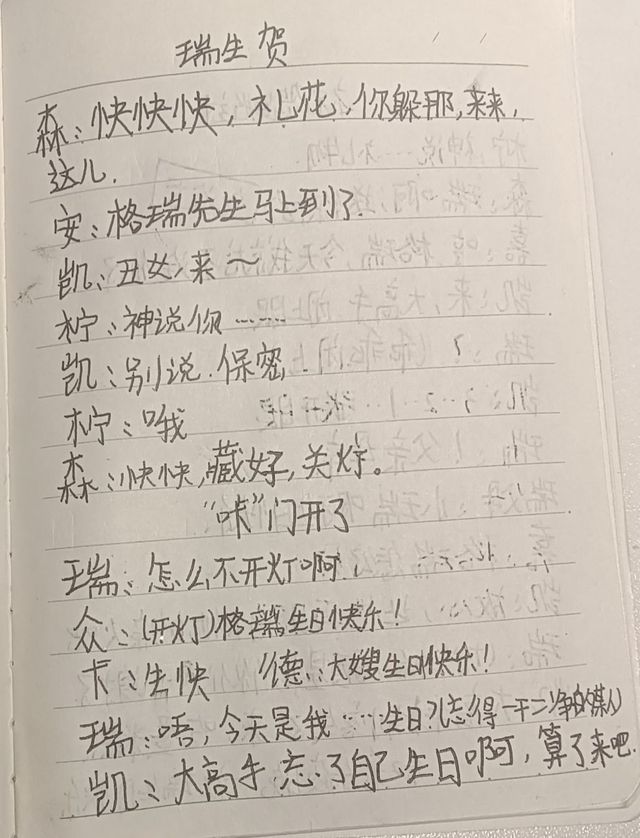 瑞生贺
森:快快快,礼花,你躲那,来来,
这儿.
安:格瑞先生马上到了.
凯:丑女,来~
柠:神说你……
凯:别说.保密.
柠:哦
森:快快,藏好,关灯。
“咔”门开了
瑞:怎么不开灯啊,
众:(开灯)格瑞生日快乐!
卡:生快 德:大嫂生日快乐!
瑞:唔,今天是我……生日?(忘得一干二净的某人)
凯:大高手忘了自己生日啊,算了来吧.